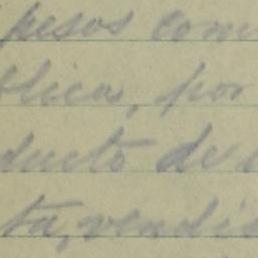 pesos com
blica, por
ducto de
ta, vendi